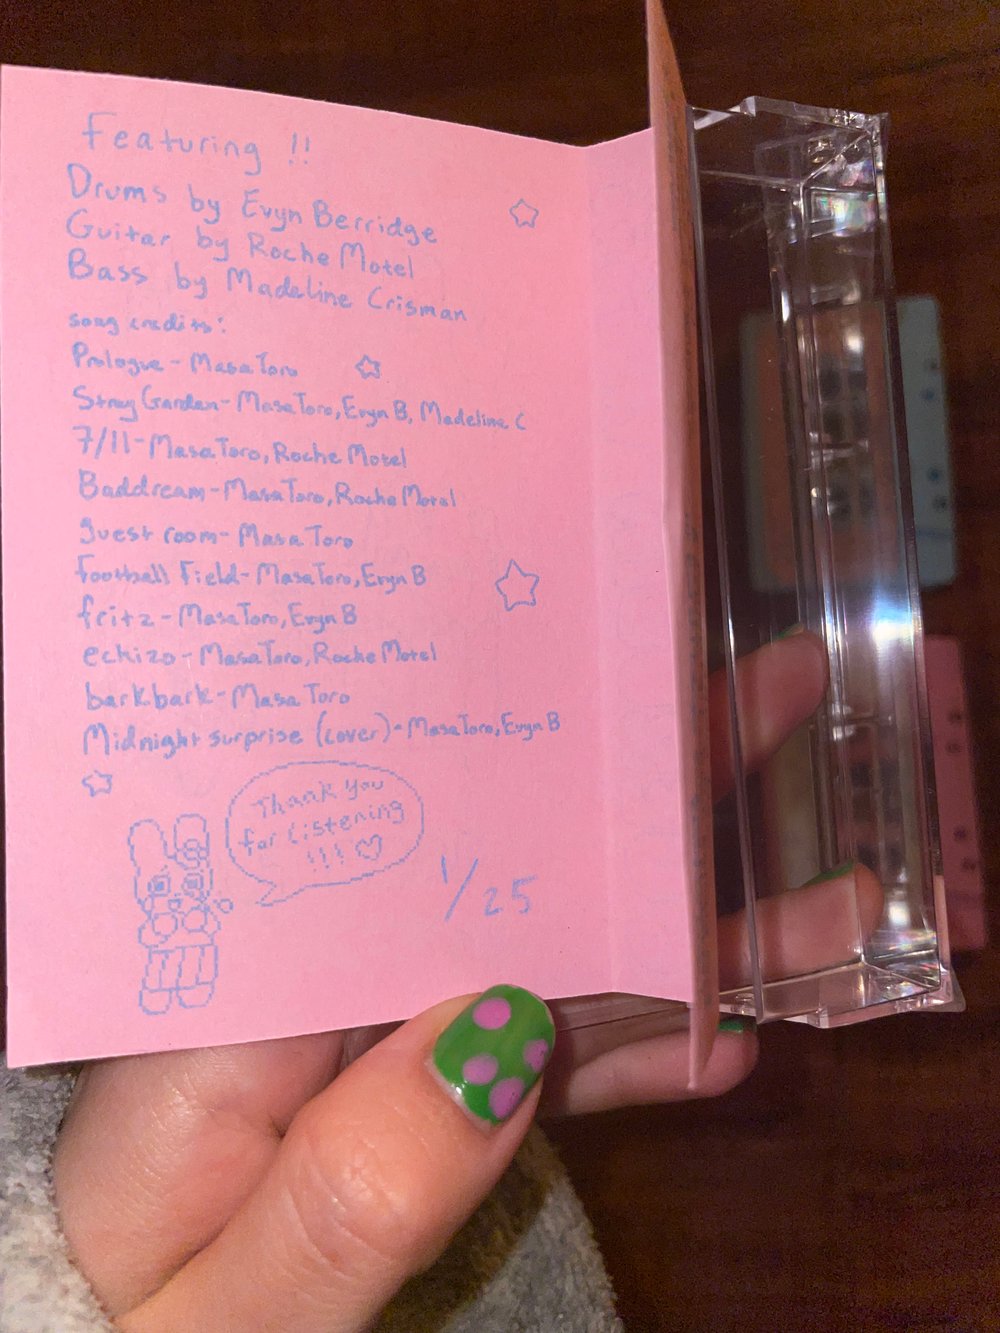 Featuring !!
Drums by Evyn Berridge
Guitar by Roche Motel
Bass by Madeline Crisman
song credits:
Prologue - Masa Toro
Stray Garden - Masa Toro, Evyn B, Madeline C
7/11 - Masa Toro, Roche Motel
Baddream - Masa Toro, Roche Motel
guest room - Masa Toro
football Field - Masa Toro, Evyn B
fritz - Masa Toro, Evyn B
echizo - Masa Toro, Roche Motel
barkbark - Masa Toro
Midnight surprise (cover) - Masa Toro, Evyn B
Thank you
for listening
!!! ♡
1/25